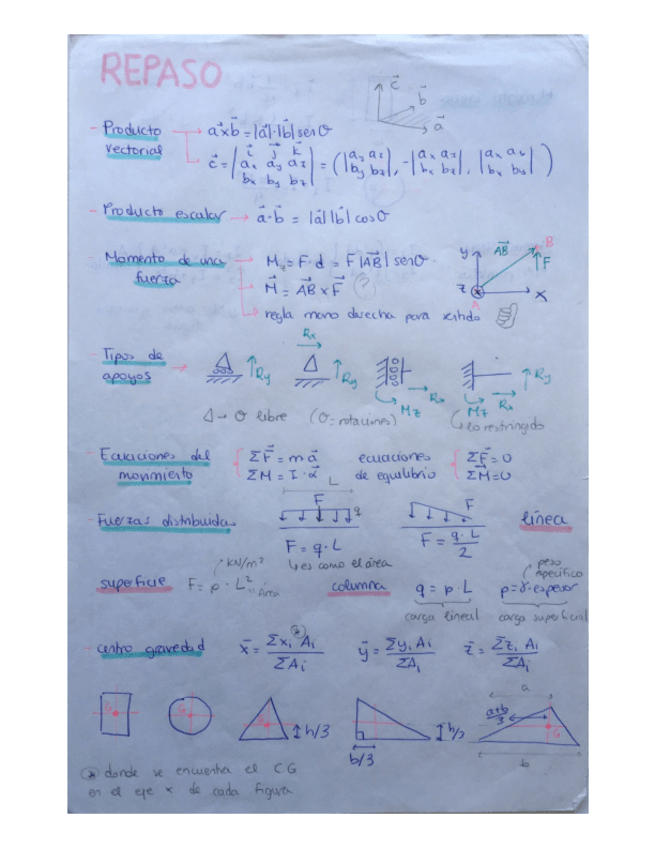 REPASO
c⃗
b⃗
a⃗
- Producto vectorial → a⃗xb⃗ = |a⃗|·|b⃗| senθ
c⃗ = | i⃗ j⃗ k⃗ ; ax ay az ; bx by bz | = ( |ay az ; by bz|, -|ax az ; bx bz|, |ax ay ; bx by| )
- Producto escalar → a⃗·b⃗ = |a⃗||b⃗| cosθ
- Momento de una fuerza → Mz = F·d = F|AB⃗| senθ
M⃗ = AB⃗ x F⃗ ?
regla mano derecha para sentido
y AB⃗ B
F
z A x
- Tipos de apoyos →
Ry
Rx Ry
Mz Rx
Mz Rx Ry
Δ→ θ libre (θ = rotaciones) lo restringido
- Ecuaciones del movimiento { ΣF⃗ = m a⃗ ecuaciones { ΣF⃗ = 0
ΣM = I·α⃗ de equilibrio ΣM⃗ = 0
- Fuerzas distribuidas
L
F q
F = q·L
↳ es como el área
F
F = q·L/2
línea
superficie F = p · L² kN/m² Área
columna q = p·L p = γ·espesor
peso específico
carga lineal carga superficial
- centro gravedad x̄ = Σxi Ai / ΣAi ȳ = Σyi Ai / ΣAi z̄ = Σzi Ai / ΣAi
G G G h/3 b/3 h/3 a a+b/3 G b
* donde se encuentra el CG
en el eje x de cada figura